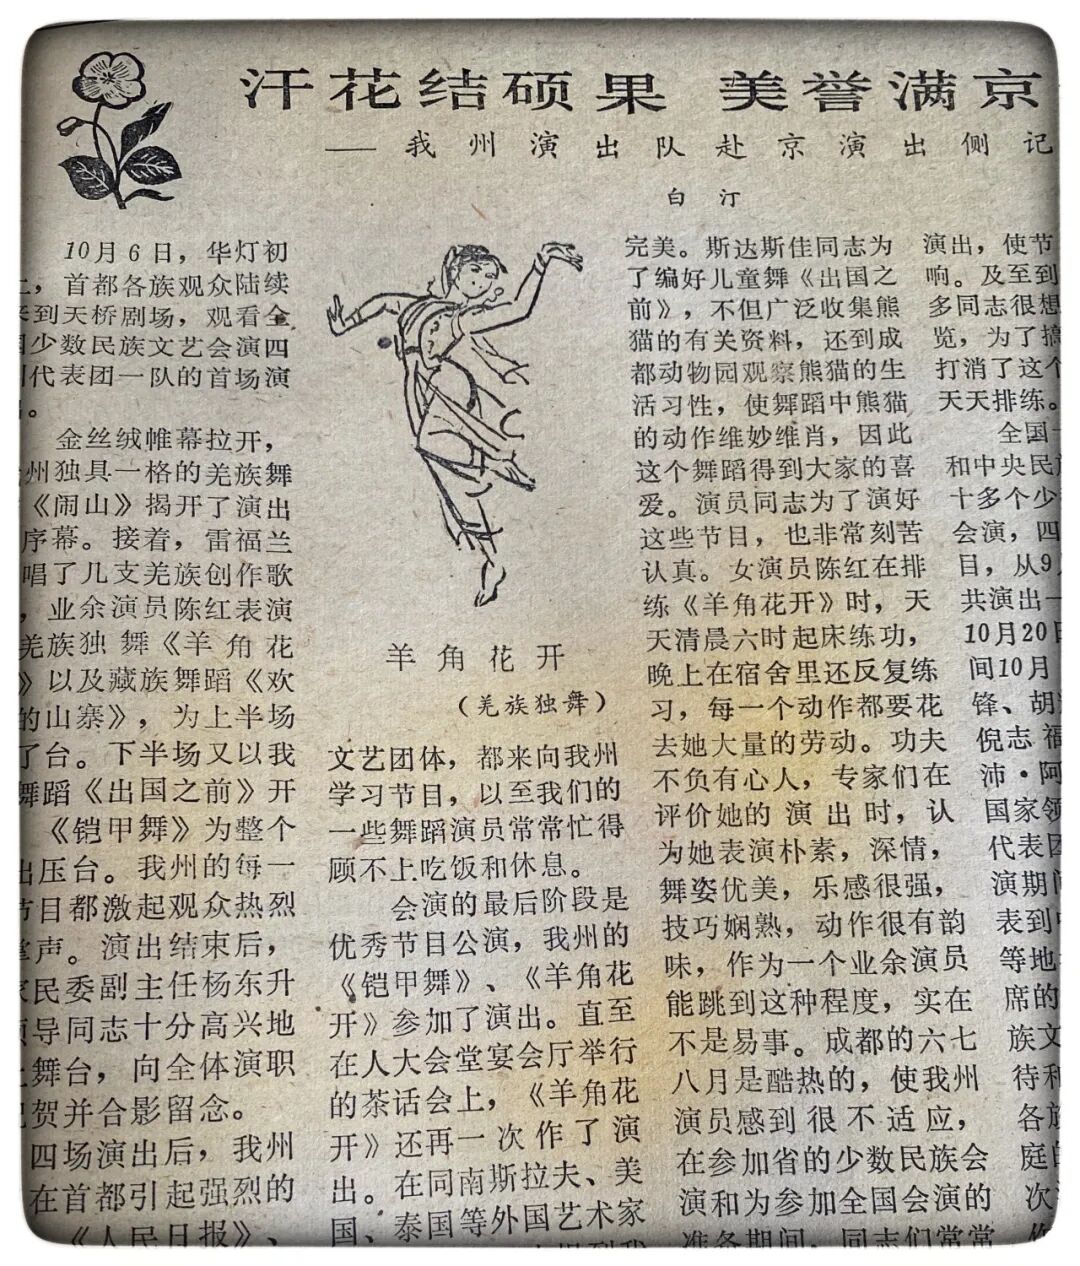 汗花结硕果 美誉满京
——我州演出队赴京演出侧记
白汀
10月6日，华灯初
上，首都各族观众陆续
来到天桥剧场，观看全
国少数民族文艺会演四
川代表团一队的首场演
出。
金丝绒帷幕拉开，
州独具一格的羌族舞
《闹山》揭开了演出
序幕。接着，雷福兰
唱了几支羌族创作歌
，业余演员陈红表演
羌族独舞《羊角花
》以及藏族舞蹈《欢
的山寨》，为上半场
了台。下半场又以我
舞蹈《出国之前》开
《铠甲舞》为整个
出压台。我州的每一
节目都激起观众热烈
掌声。演出结束后，
家民委副主任杨东升
领导同志十分高兴地
上舞台，向全体演职
祝贺并合影留念。
四场演出后，我州
在首都引起强烈的
《人民日报》、
羊角花开
（羌族独舞）
文艺团体，都来向我州
学习节目，以至我们的
一些舞蹈演员常常忙得
顾不上吃饭和休息。
会演的最后阶段是
优秀节目公演，我州的
《铠甲舞》、《羊角花
开》参加了演出。直至
在人大会堂宴会厅举行
的茶话会上，《羊角花
开》还再一次作了演
出。在同南斯拉夫、美
国、泰国等外国艺术家
完美。斯达斯佳同志为
了编好儿童舞《出国之
前》，不但广泛收集熊
猫的有关资料，还到成
都动物园观察熊猫的生
活习性，使舞蹈中熊猫
的动作维妙维肖，因此
这个舞蹈得到大家的喜
爱。演员同志为了演好
这些节目，也非常刻苦
认真。女演员陈红在排
练《羊角花开》时，天
天清晨六时起床练功，
晚上在宿舍里还反复练
习，每一个动作都要花
去她大量的劳动。功夫
不负有心人，专家们在
评价她的演出时，认
为她表演朴素，深情，
舞姿优美，乐感很强，
技巧娴熟，动作很有韵
味，作为一个业余演员
能跳到这种程度，实在
不是易事。成都的六七
八月是酷热的，使我州
演员感到很不适应，
在参加省的少数民族会
演和为参加全国会演的
准备期间，同志们常常
演出，使节
响。及至到
多同志很想
览，为了搞
打消了这个
天天排练。
全国
和中央民族
十多个少
会演，四
目，从9
共演出一
10月20日
间10月
锋、胡
倪志福
沛·阿
国家领
代表团
演期间
表到中
等地
席的
族文
待和
各族
庭的
次